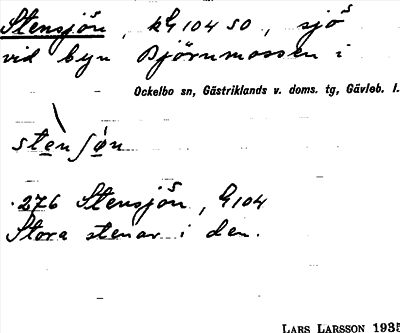 Stensjön, kG 104 SO, sjö
vid byn Björnmossen i
Ockelbo sn, Gästriklands v. doms. tg, Gävleb. l.
stèn ʃǿn
276 Stensjön, G104
Stora stenar i den.
LARS LARSSON 1935